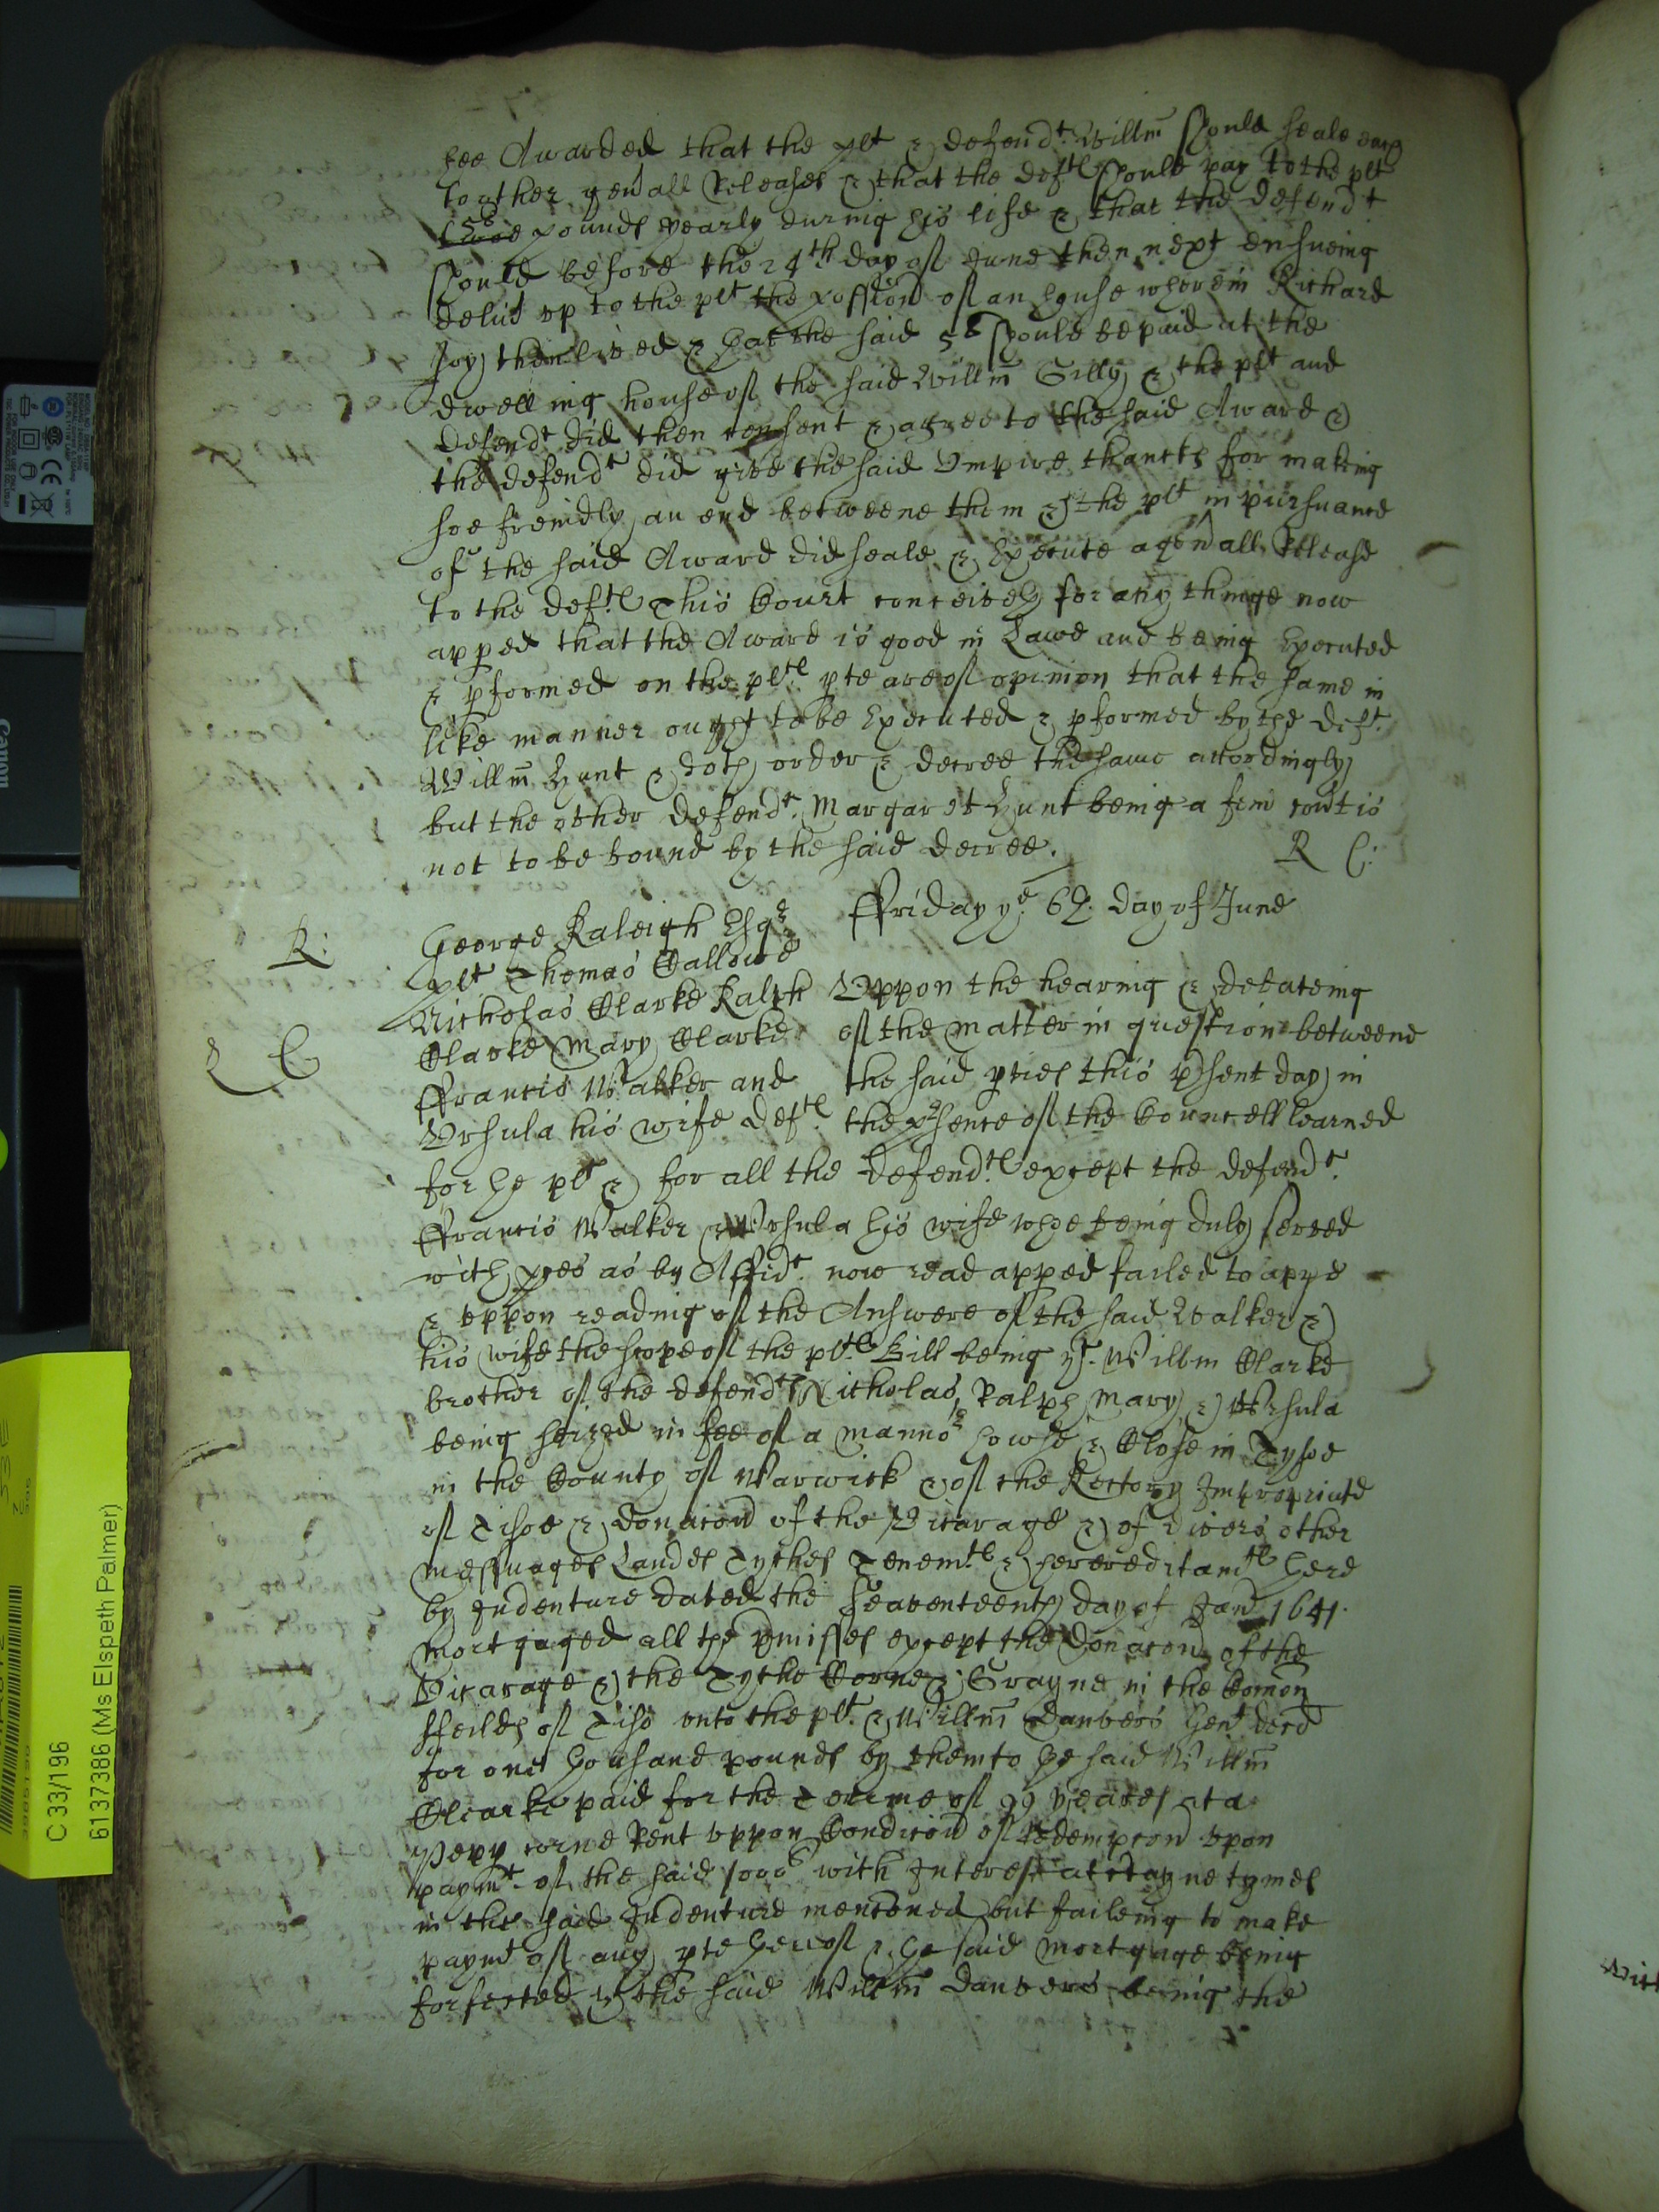 hee Awarded that the plt & defendt. Willm should seale each
to other gen'all Releases & that the deftes should pay to the plt
five pounds yearly during his life & that the defendt
should before the 24th day of June then next ensueing
deliu'd up to the plt the possion of an house wherein Richard
Joy then lived & that the said 5l should be paid at the
dwelling house of the said Willm Gilly & the plt and
defendt did then consent & agree to the said Award &
the defendt did give the said Umpire thancks for making
soe freindly an end betweene them & the plt in pursuance
of the said Award did seale & Execute a gen'all Release
to the deftes This Court conceiveth for any thinge now
apped that the Award is good in Lawe and being Executed
& pformed on the pltes pte are of opinion that the same in
like manner ought to be Executed & pformed by the deft.
Willm Hunt & doth order & decree the same accordingly
but the other defendt. Margaret Hunt being a fem covt is
not to be bound by the said decree.
R C:
ffriday ye. 6th. day of June
R:
George Raleigh Esqr
plt Thomas Callowe
Nicholas Clarke Ralph
Clarke Mary Clarke
ffrancis Walker and
Ursula his wife deftes
C
Uppon the hearing & debateing
of the matter in question betweene
the said pties this psent day in
the psence of the Councell learned
for the plt & for all the defendtes except the defendt.
ffrancis Walker & Ursula his wife whoe being duly served
with pces as by Affidt. now read apped failed to appe
& uppon reading of the Answere of the said Walker &
his wife the scope of the pltes Bill being yt. Willm Clarke
brother of the defendtes Nicholas, Ralph Mary & Ursula
being seized in fee of a mannor howse & Close in Tysoe
in the County of Warwick & of the Rectory Impropriate
of Tisoe & Donacon of the Vicarage & of divers other
messuages Landes Tythes Tenemtes & herereditamtes there
by Indenture dated the Seaventeenth day of Jan 1641.
mortgaged all the pmisses except the Donacon of the
Vicarage & the Tythe Corne & Grayne in the Comon
ffeildes of Tiso unto the plt. & Willm Danvers Gent decd
for one thousand pounds by them to the said Willm
Clearke paid for the Terme of 99 yeares at a
Pepp corne Rent uppon Condicon of Redempcon upon
paymt. of the said 1000l with Interest at ctayne tymes
in the said Indenture menconed but faileing to make
paymt of any pte thereof & the said mortgage being
forfeited & the said Willm Danvers being the
C 33/196
6137386 (Ms Elspeth Palmer)
Canon